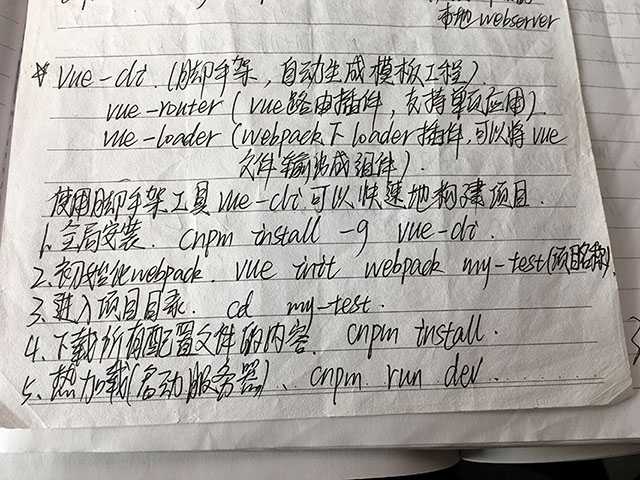 本地webserver
* vue-cli.(脚手架,自动生成模板工程).
vue-router(vue路由插件,支持单页应用).
vue-loader(webpack下loader插件,可以将vue
文件输出成组件).
使用脚手架工具vue-cli可以快速地构建项目.
1.全局安装. cnpm install -g vue-cli.
2.初始化webpack. vue init webpack my-test(项目名称).
3.进入项目目录. cd my-test.
4.下载所有配置文件的内容. cnpm install.
5.热加载(启动服务器)、cnpm run dev.